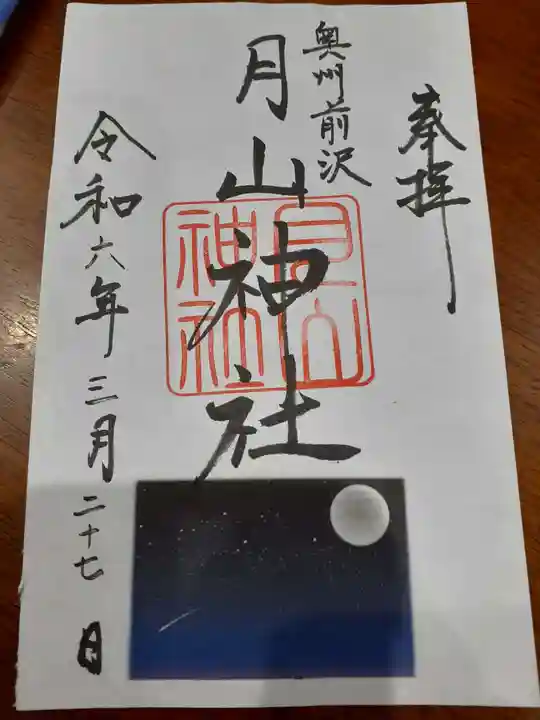 奉拝
奥州前沢
月山神社
月山神社
令和六年三月二十七日